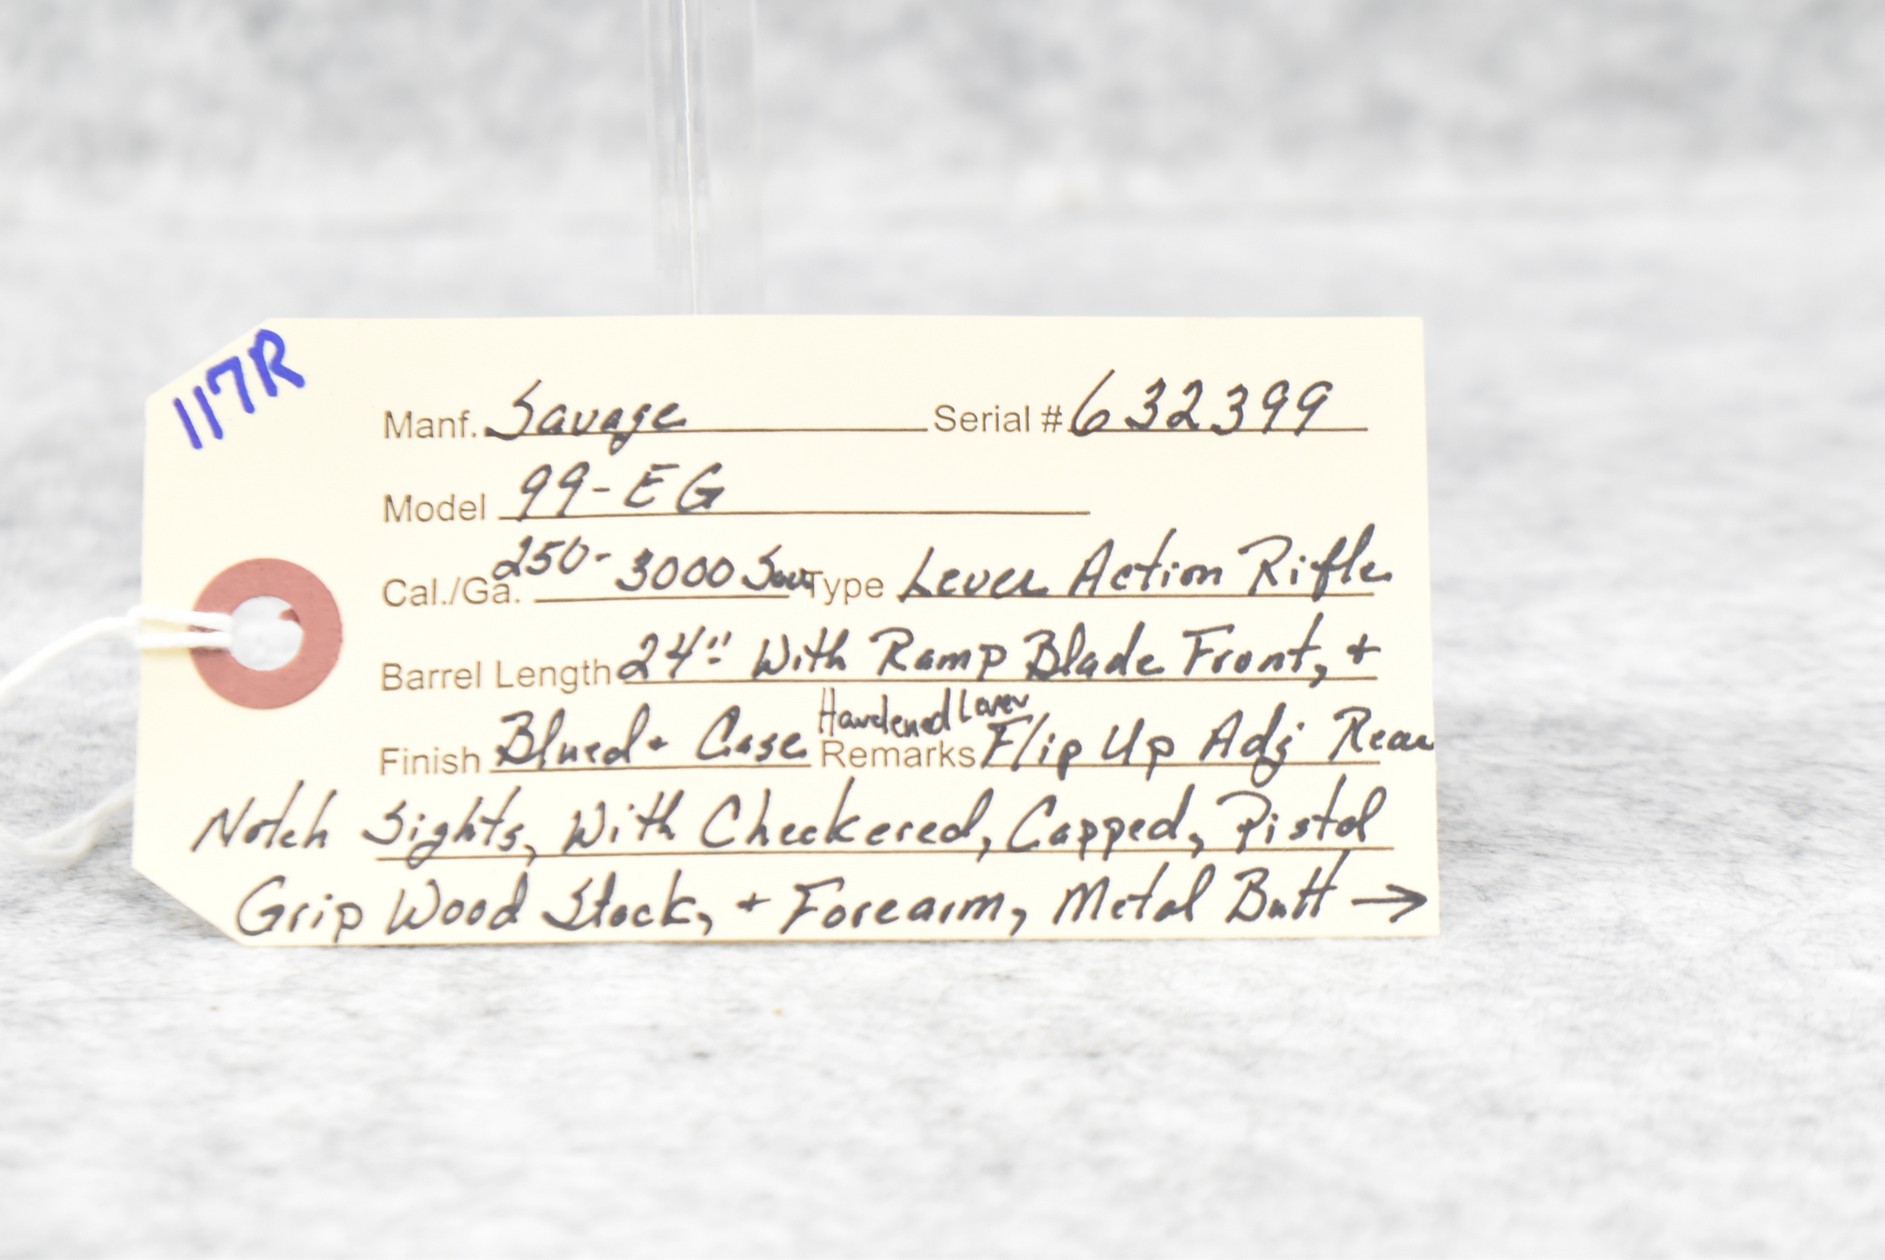 117R
Manf. Savage Serial # 632399
Model 99-EG
Cal./Ga. 250-3000 Sav Type Lever Action Rifle
Barrel Length 24" With Ramp Blade Front, +
Hardened Lever
Finish Blued + Case Remarks Flip Up Adj Rear
Notch Sights, With Checkered, Capped, Pistol
Grip Wood Stock, + Forearm, Metal Butt →